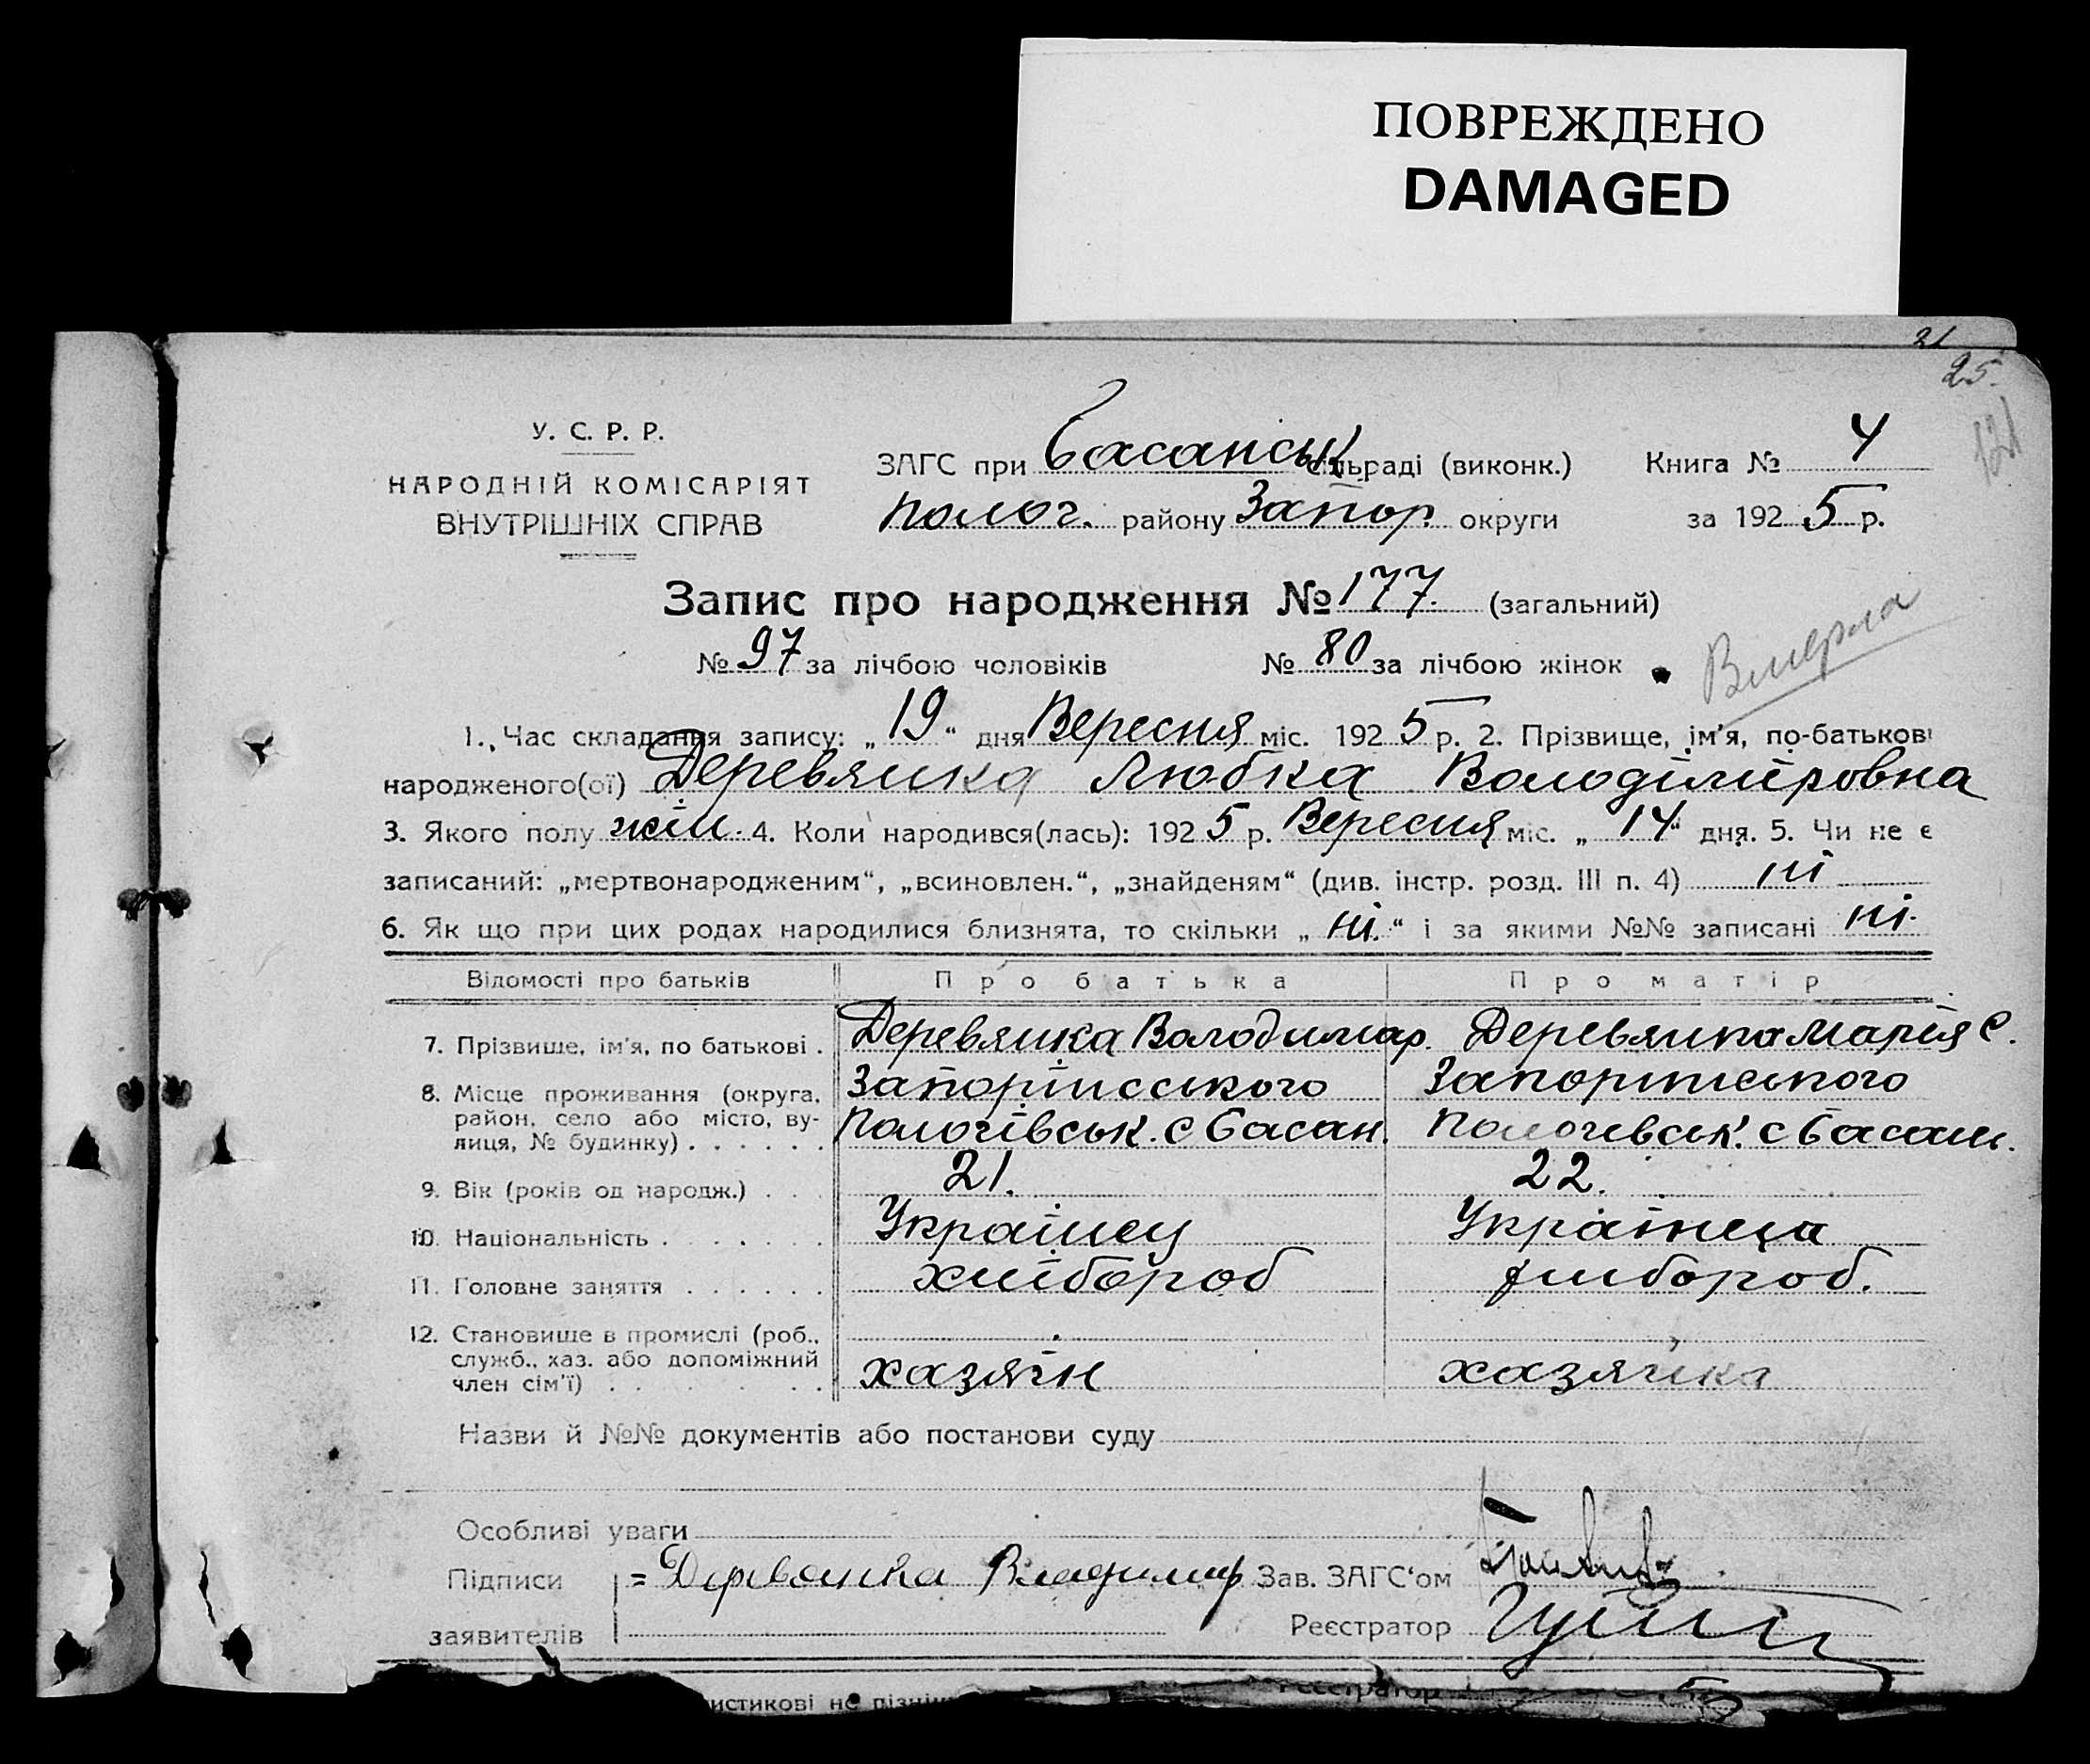 ПОВРЕЖДЕНО
DAMAGED
21
25.
121
У. С. Р. Р.
НАРОДНІЙ КОМІСАРІЯТ
ВНУТРІШНІХ СПРАВ
ЗАГС при Басанськ сільраді (виконк.) Книга № 4
Полог. району Запор. округи за 1925 р.
Запис про народження № 177. (загальний)
№ 97 за лічбою чоловіків № 80 за лічбою жінок
Вмерла
1. Час складання запису: „19“ дня Вересня міс. 1925 р. 2. Прізвище, ім'я, по-батькові
народженого(ої) Деревянка Любка Володімировна
3. Якого полу жін. 4. Коли народився(лась): 1925 р. Вересня міс. „14“ дня. 5. Чи не є
записаний: „мертвонародженим“, „всиновлен.“, „знайденям“ (див. інстр. розд. III п. 4) ні
6. Як що при цих родах народилися близнята, то скільки „ні.“ і за якими №№ записані ні.
Відомості про батьків Про батька Про матір
7. Прізвише, ім'я, по батькові . Деревянка Володимар. Деревянка Марія С.
8. Місце проживання (округа, Запоріжського Запоріжського
район, село або місто, ву- Пологівськ. с Басан. Пологівськ. с Басань.
лиця, № будинку) . . . . . .
9. Вік (років од народж.) . . . 21. 22.
10. Національність . . . . . . . Українец Українца
11. Головне заняття . . . . . . хлібороб хлібороб.
12. Становише в промислі (роб.,
служб., хаз. або допоміжний хазяїн хазяйка
член сім'ї) . . . . . . .
Назви й №№ документів або постанови суду
Особливі уваги
Підписи = Деревянка Владимир Зав. ЗАГС'ом
заявителів Реєстратор
истикові не пізні Реєстратор